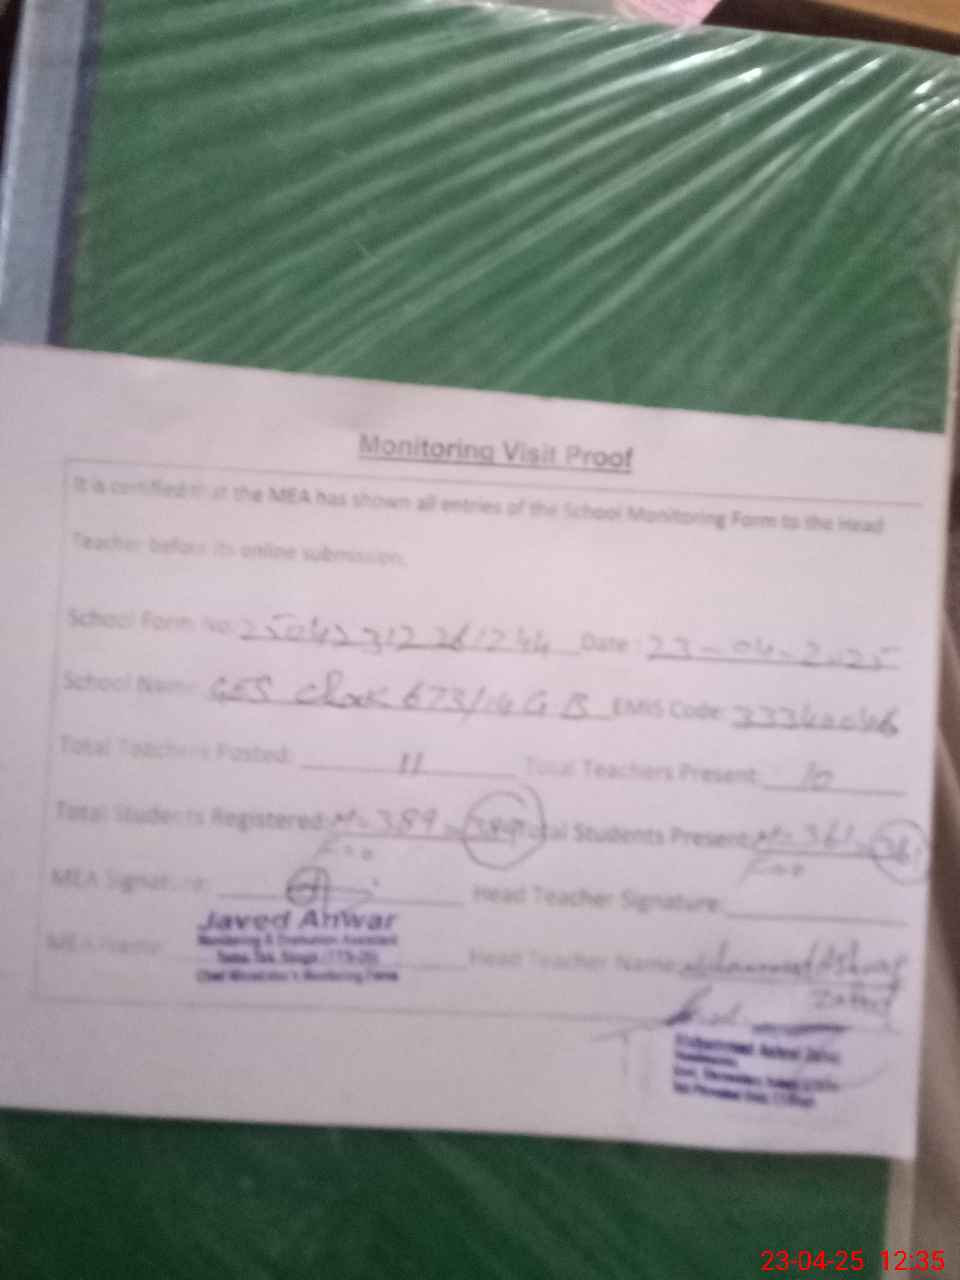 Monitoring Visit Proof
It is certified that the MEA has shown all entries of the School Monitoring Form to the Head
Teacher before its online submission.
School Form No: Date: 23-04-2025
School Name: GES Chak 673/14 GB EMIS Code:
Total Teachers Posted: 11 Total Teachers Present: 10
Total Students Registered: M=389 389 Total Students Present: M=361 361
F=00 F=00
MEA Signature: Head Teacher Signature:
Javed Anwar
Monitoring & Evaluation Assistant
MEA Name: Head Teacher Name: Muhammad Ashraf
Toba Tek Singh
Chief Minister's Monitoring Force
Muhammad Ashraf
23-04-25 12:35